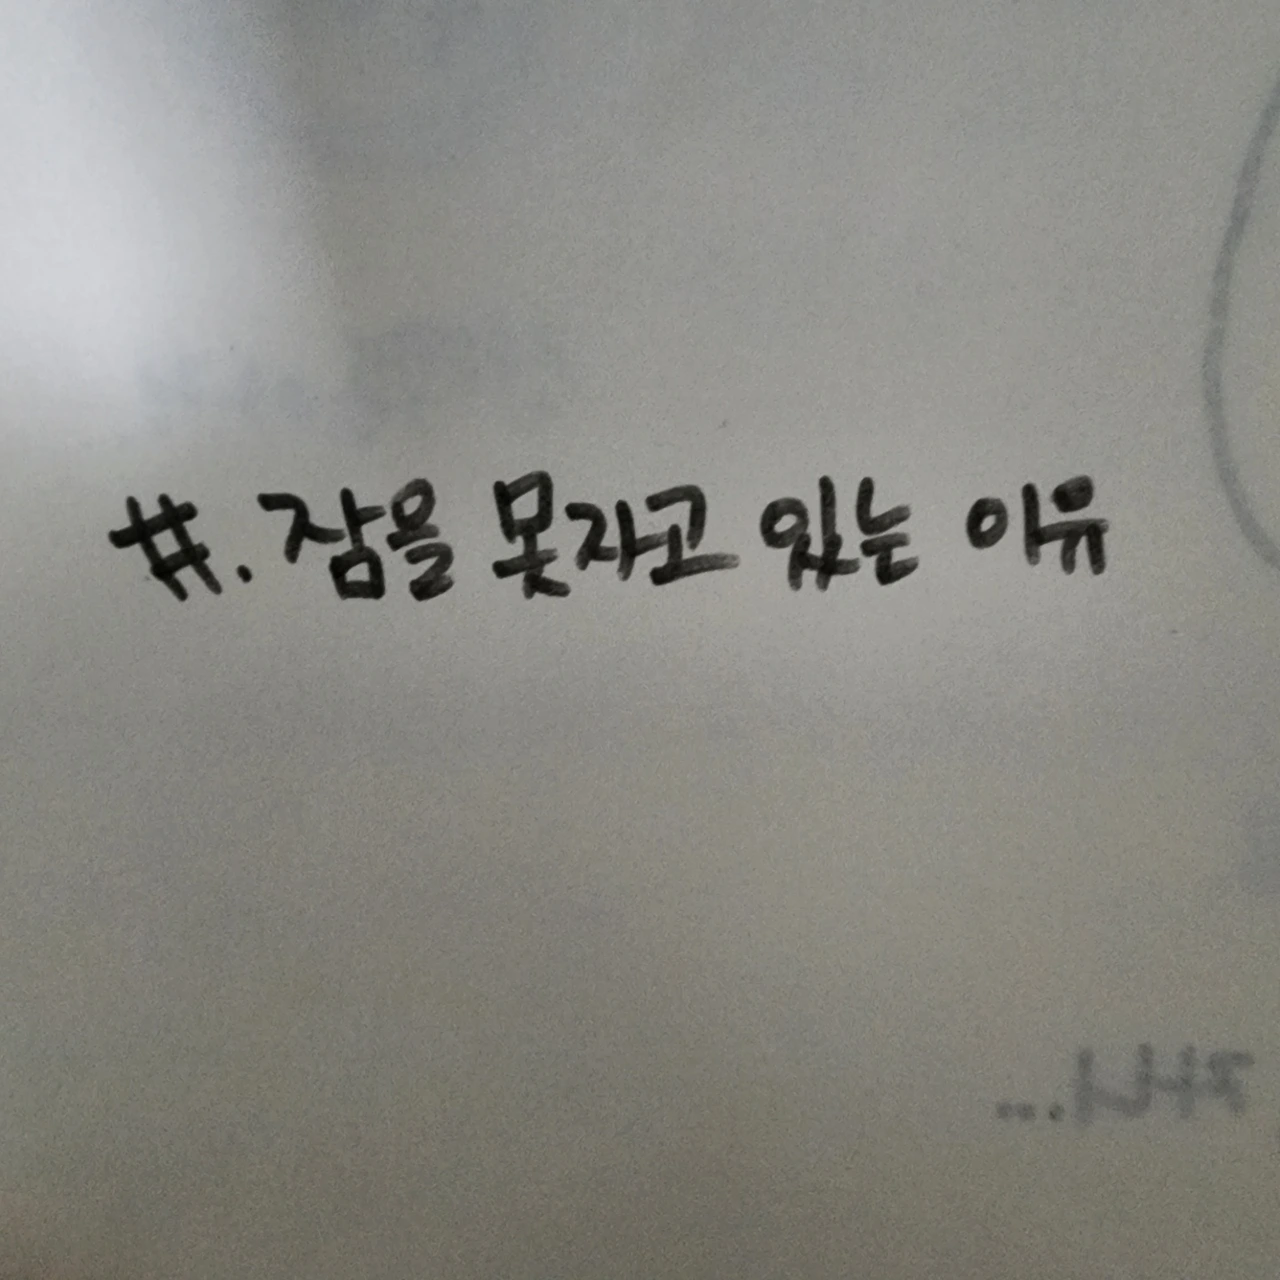 #. 잠을 못자고 있는 이유